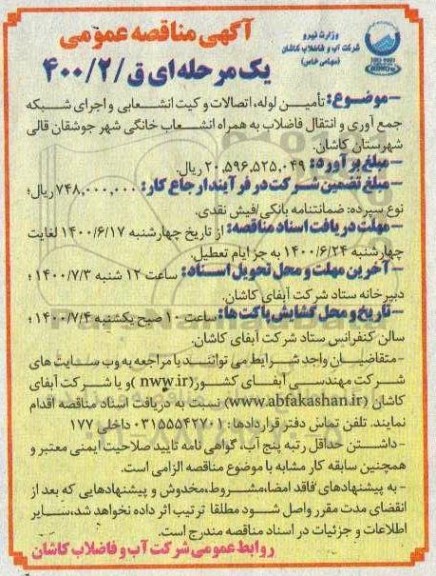 وزارت نیرو
شرکت آب و فاضلاب کاشان
(سهامی خاص)
آگهی مناقصه عمومی
یک مرحله ای ق/۴۰۰/۲
-موضوع: تأمین لوله، اتصالات و کیت انشعابی و اجرای شبکه
جمع آوری و انتقال فاضلاب به همراه انشعاب خانگی شهر جوشقان قالی
شهرستان کاشان.
-مبلغ برآورد: ۲۰,۵۹۶,۵۲۵,۰۴۹ ریال.
-مبلغ تضمین شرکت در فرآیند ارجاع کار: ۷۴۸,۰۰۰,۰۰۰ ریال؛
نوع سپرده: ضمانتنامه بانکی/فیش نقدی.
-مهلت دریافت اسناد مناقصه: از تاریخ چهارشنبه ۱۴۰۰/۶/۱۷ لغایت
چهارشنبه ۱۴۰۰/۶/۲۴ به جز ایام تعطیل.
-آخرین مهلت و محل تحویل اسناد: ساعت ۱۲ شنبه ۱۴۰۰/۷/۳؛
دبیرخانه ستاد شرکت آبفای کاشان.
-تاریخ و محل گشایش پاکت ها: ساعت ۱۰ صبح یکشنبه ۱۴۰۰/۷/۴؛
سالن کنفرانس ستاد شرکت آبفای کاشان.
-متقاضیان واجد شرایط می توانند با مراجعه به وب سایت های
شرکت مهندسی آبفای کشور(nww.ir) و یا شرکت آبفای
کاشان (www.abfakashan.ir) نسبت به دریافت اسناد مناقصه اقدام
نمایند. تلفن تماس دفتر قراردادها: ۰۳۱۵۵۵۴۷۷۰۱ داخلی ۱۷۷
-داشتن حداقل رتبه پنج آب، گواهی نامه تایید صلاحیت ایمنی معتبر و
همچنین سابقه کار مشابه با موضوع مناقصه الزامی است.
-به پیشنهادهای فاقد امضا،مشروط،مخدوش و پیشنهادهایی که بعد از
انقضای مدت مقرر واصل شود مطلقا ترتیب اثر داده نخواهد شد،سایر
اطلاعات و جزئیات در اسناد مناقصه مندرج است.
روابط عمومی شرکت آب و فاضلاب کاشان